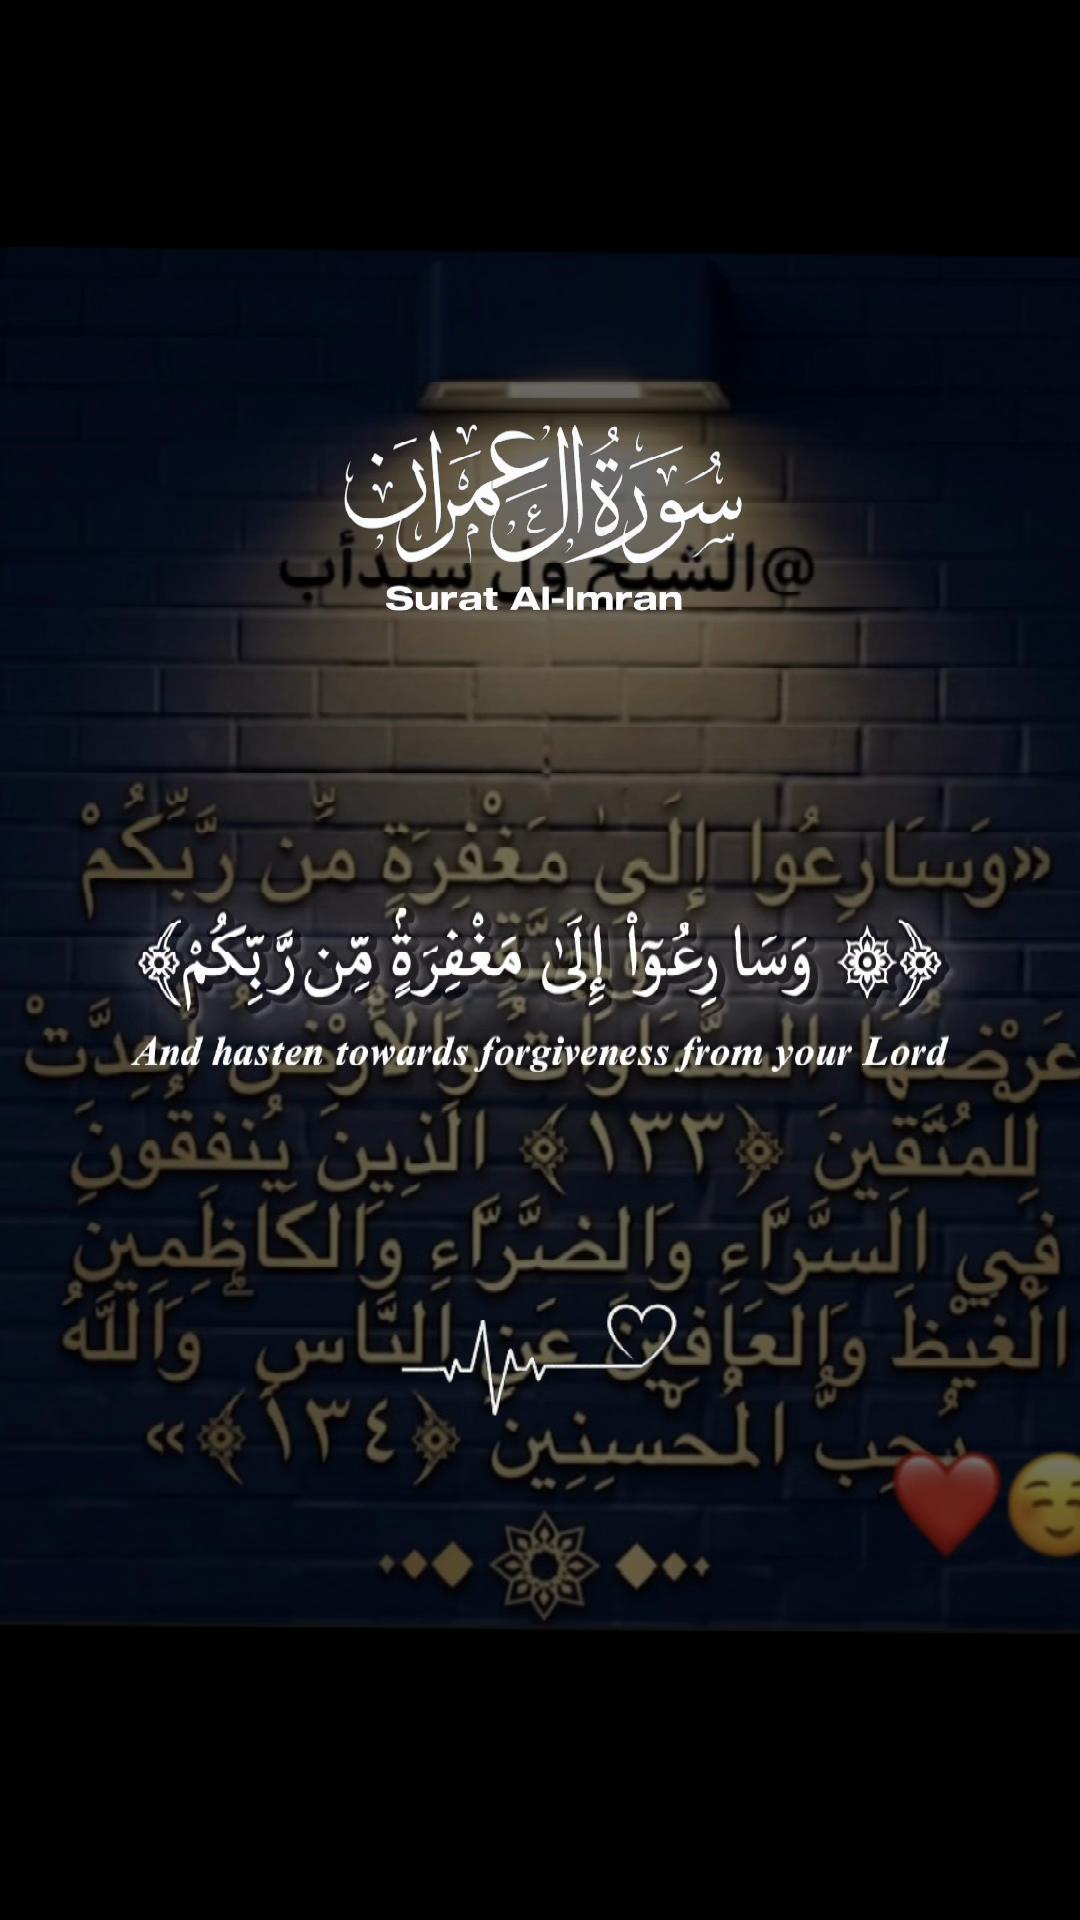 سُورَةُ آلِ عِمْرَان
@الشيخ ول سيدأب
Surat Al-Imran
«وَسَارِعُوا إِلَىٰ مَغْفِرَةٍ مِّن رَّبِّكُمْ
﴿۞ وَسَارِعُوٓا۟ إِلَىٰ مَغْفِرَةٍ مِّن رَّبِّكُمْ﴾
And hasten towards forgiveness from your Lord
عَرْضُهَا السَّمَاوَاتُ وَالْأَرْضُ أُعِدَّتْ
لِلْمُتَّقِينَ ﴿١٣٣﴾ الَّذِينَ يُنْفِقُونَ
فِي السَّرَّاءِ وَالضَّرَّاءِ وَالْكَاظِمِينَ
الْغَيْظَ وَالْعَافِينَ عَنِ النَّاسِ ۗ وَاللَّهُ
يُحِبُّ الْمُحْسِنِينَ ﴿١٣٤﴾»